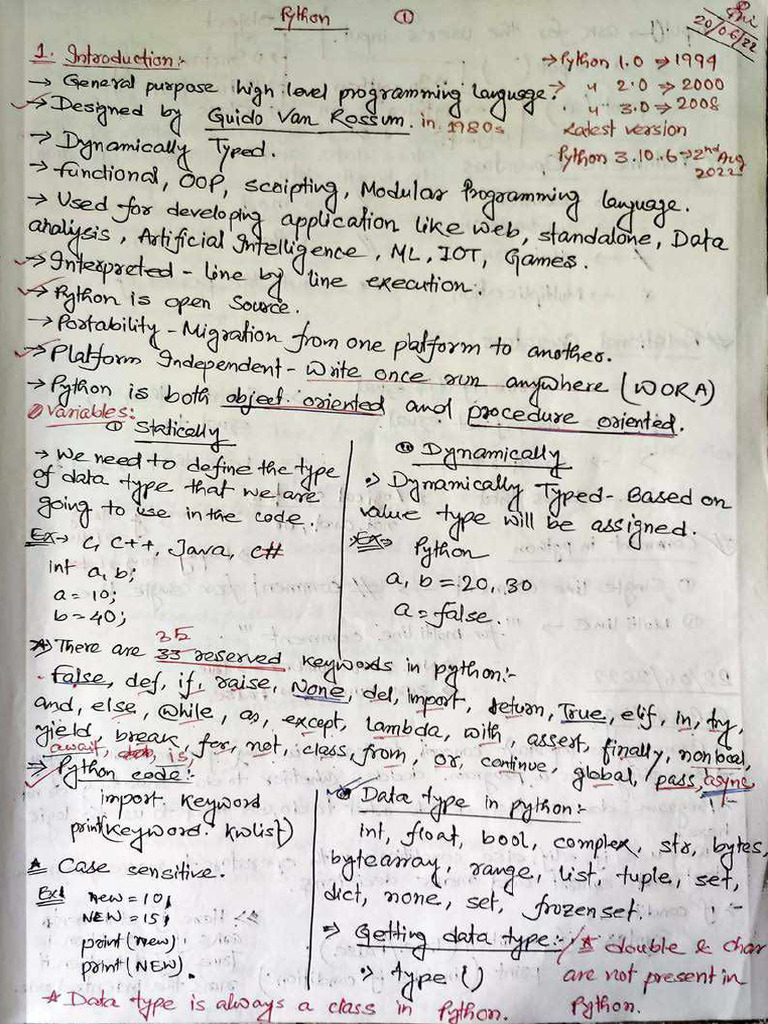 Python ①
20/06/22
1. Introduction:-
→ General purpose high level programming language.
→ Python 1.0 ⇒ 1994
→ " 2.0 ⇒ 2000
" 3.0 ⇒ 2008
Latest version
Python 3.10.6 → 2nd Aug 2022
→ Designed by Guido Van Rossum. in 1980s
→ Dynamically Typed.
→ Functional, OOP, scripting, Modular Programming language.
→ Used for developing application like web, standalone, Data
analysis, Artificial Intelligence, ML, IOT, Games.
→ Interpreted - Line by line execution.
→ Python is open source.
→ Portability - Migration from one platform to another.
→ Platform Independent - Write once run anywhere (WORA)
→ Python is both object oriented and procedure oriented.
Variables:
① Statically
→ We need to define the type
of data type that we are
going to use in the code.
Ex → C, C++, Java, C#
int a, b;
a = 10;
b = 40;
② Dynamically
Dynamically Typed - Based on
value type will be assigned.
Ex → Python
a, b = 20, 30
a = false.
There are 33 35 reserved keywords in python:-
False, def, if, raise, None, del, import, return, True, elif, in, try,
and, else, while, as, except, lambda, with, assert, finally, nonlocal,
yield, break, for, not, class, from, or, continue, global, pass, async
await, is,
→ Python code:-
import keyword
print(keyword. kwlist)
★ Case sensitive.
Ex:
new = 10;
NEW = 15;
print(new)
print(NEW).
Data type in python:-
int, float, bool, complex, str, bytes,
bytearray, range, list, tuple, set,
dict, none, set, frozenset.
⇒ Getting data type:-
type()
★ double & char
are not present in
Python.
★ Data type is always a class in Python.